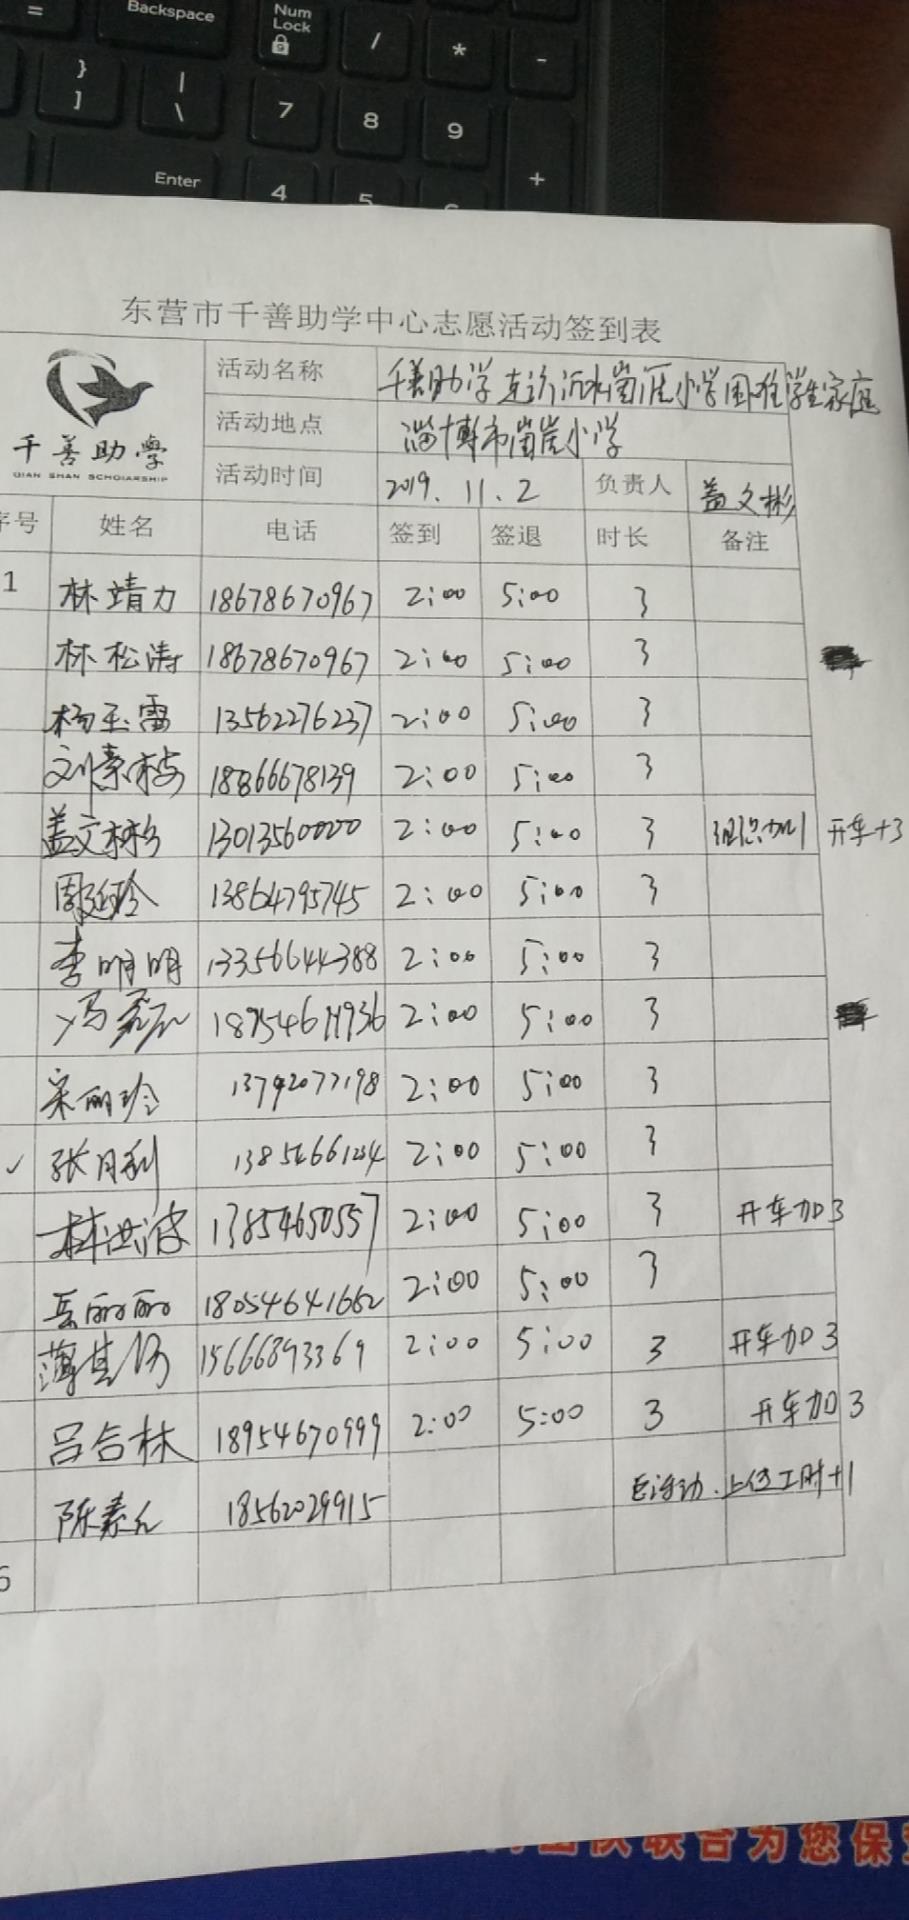 = Backspace Num Lock / * -
} ] | \ 7 8 9
Enter 4 5 6 +
东营市千善助学中心志愿活动签到表
千善助學
QIAN SHAN SCHOIARSHIP
活动名称 千善助学走访沂水崮崖小学困难学生家庭
活动地点 淄博市崮崖小学
活动时间 2019.11.2 负责人 盖文彬
序号 姓名 电话 签到 签退 时长 备注
1 林靖力 18678670967 2:00 5:00 3
林松涛 18678670967 2:00 5:00 3
杨玉雷 13562276237 2:00 5:00 3
刘素梅 18866678139 2:00 5:00 3
盖文彬 13013560000 2:00 5:00 3 组织加1 开车+3
周延玲 13864795745 2:00 5:00 3
李明明 13356644388 2:00 5:00 3
冯 2:00 5:00 3
宋丽珍 13792077198 2:00 5:00 3
✓ 张月利 13854661234 2:00 5:00 3
林洪波 13854650557 2:00 5:00 3 开车加3
岳丽丽 18054641662 2:00 5:00 3
薄其 15666893369 2:00 5:00 3 开车加3
吕合林 18954670999 2:00 5:00 3 开车加3
陈素 18562029915 活动.上传工时+1
6
队联合为您保